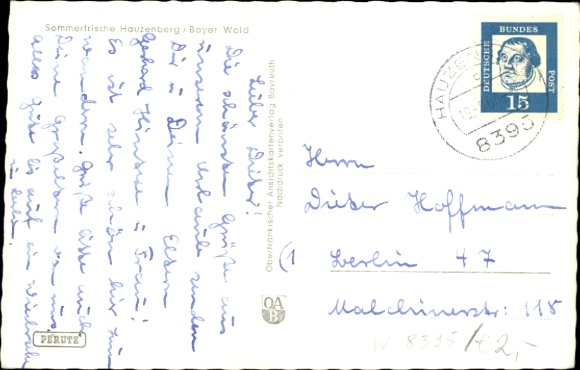 Sommerfrische Hauzenberg / Bayer. Wald
Lieber Dieter!
Die schönsten Grüße aus
unserem Urlaub senden
Dir u. Deinen Eltern
Gerhard u. Frau!
Es ist sehr schön hier zum
wandern. Grüße bitte auch
Deine Großeltern von uns
alles Gute bis auf ein
in Berlin!
Oberfränkischer Ansichtskartenverlag Bayreuth
Nachdruck verboten
OA
B
PERUTZ
DEUTSCHE BUNDES POST
15
HAUZENBERG
8395
Herrn
Dieter Hoffmann
(1 Berlin 47
Malchinerstr: 118
W 8395 / € 2,-